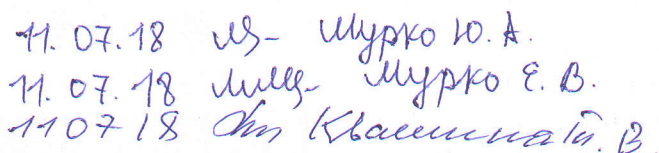 11.07.18 Мурко Ю.А.
11.07.18 Мурко Е.В.
110718 Квашнина Т.В.